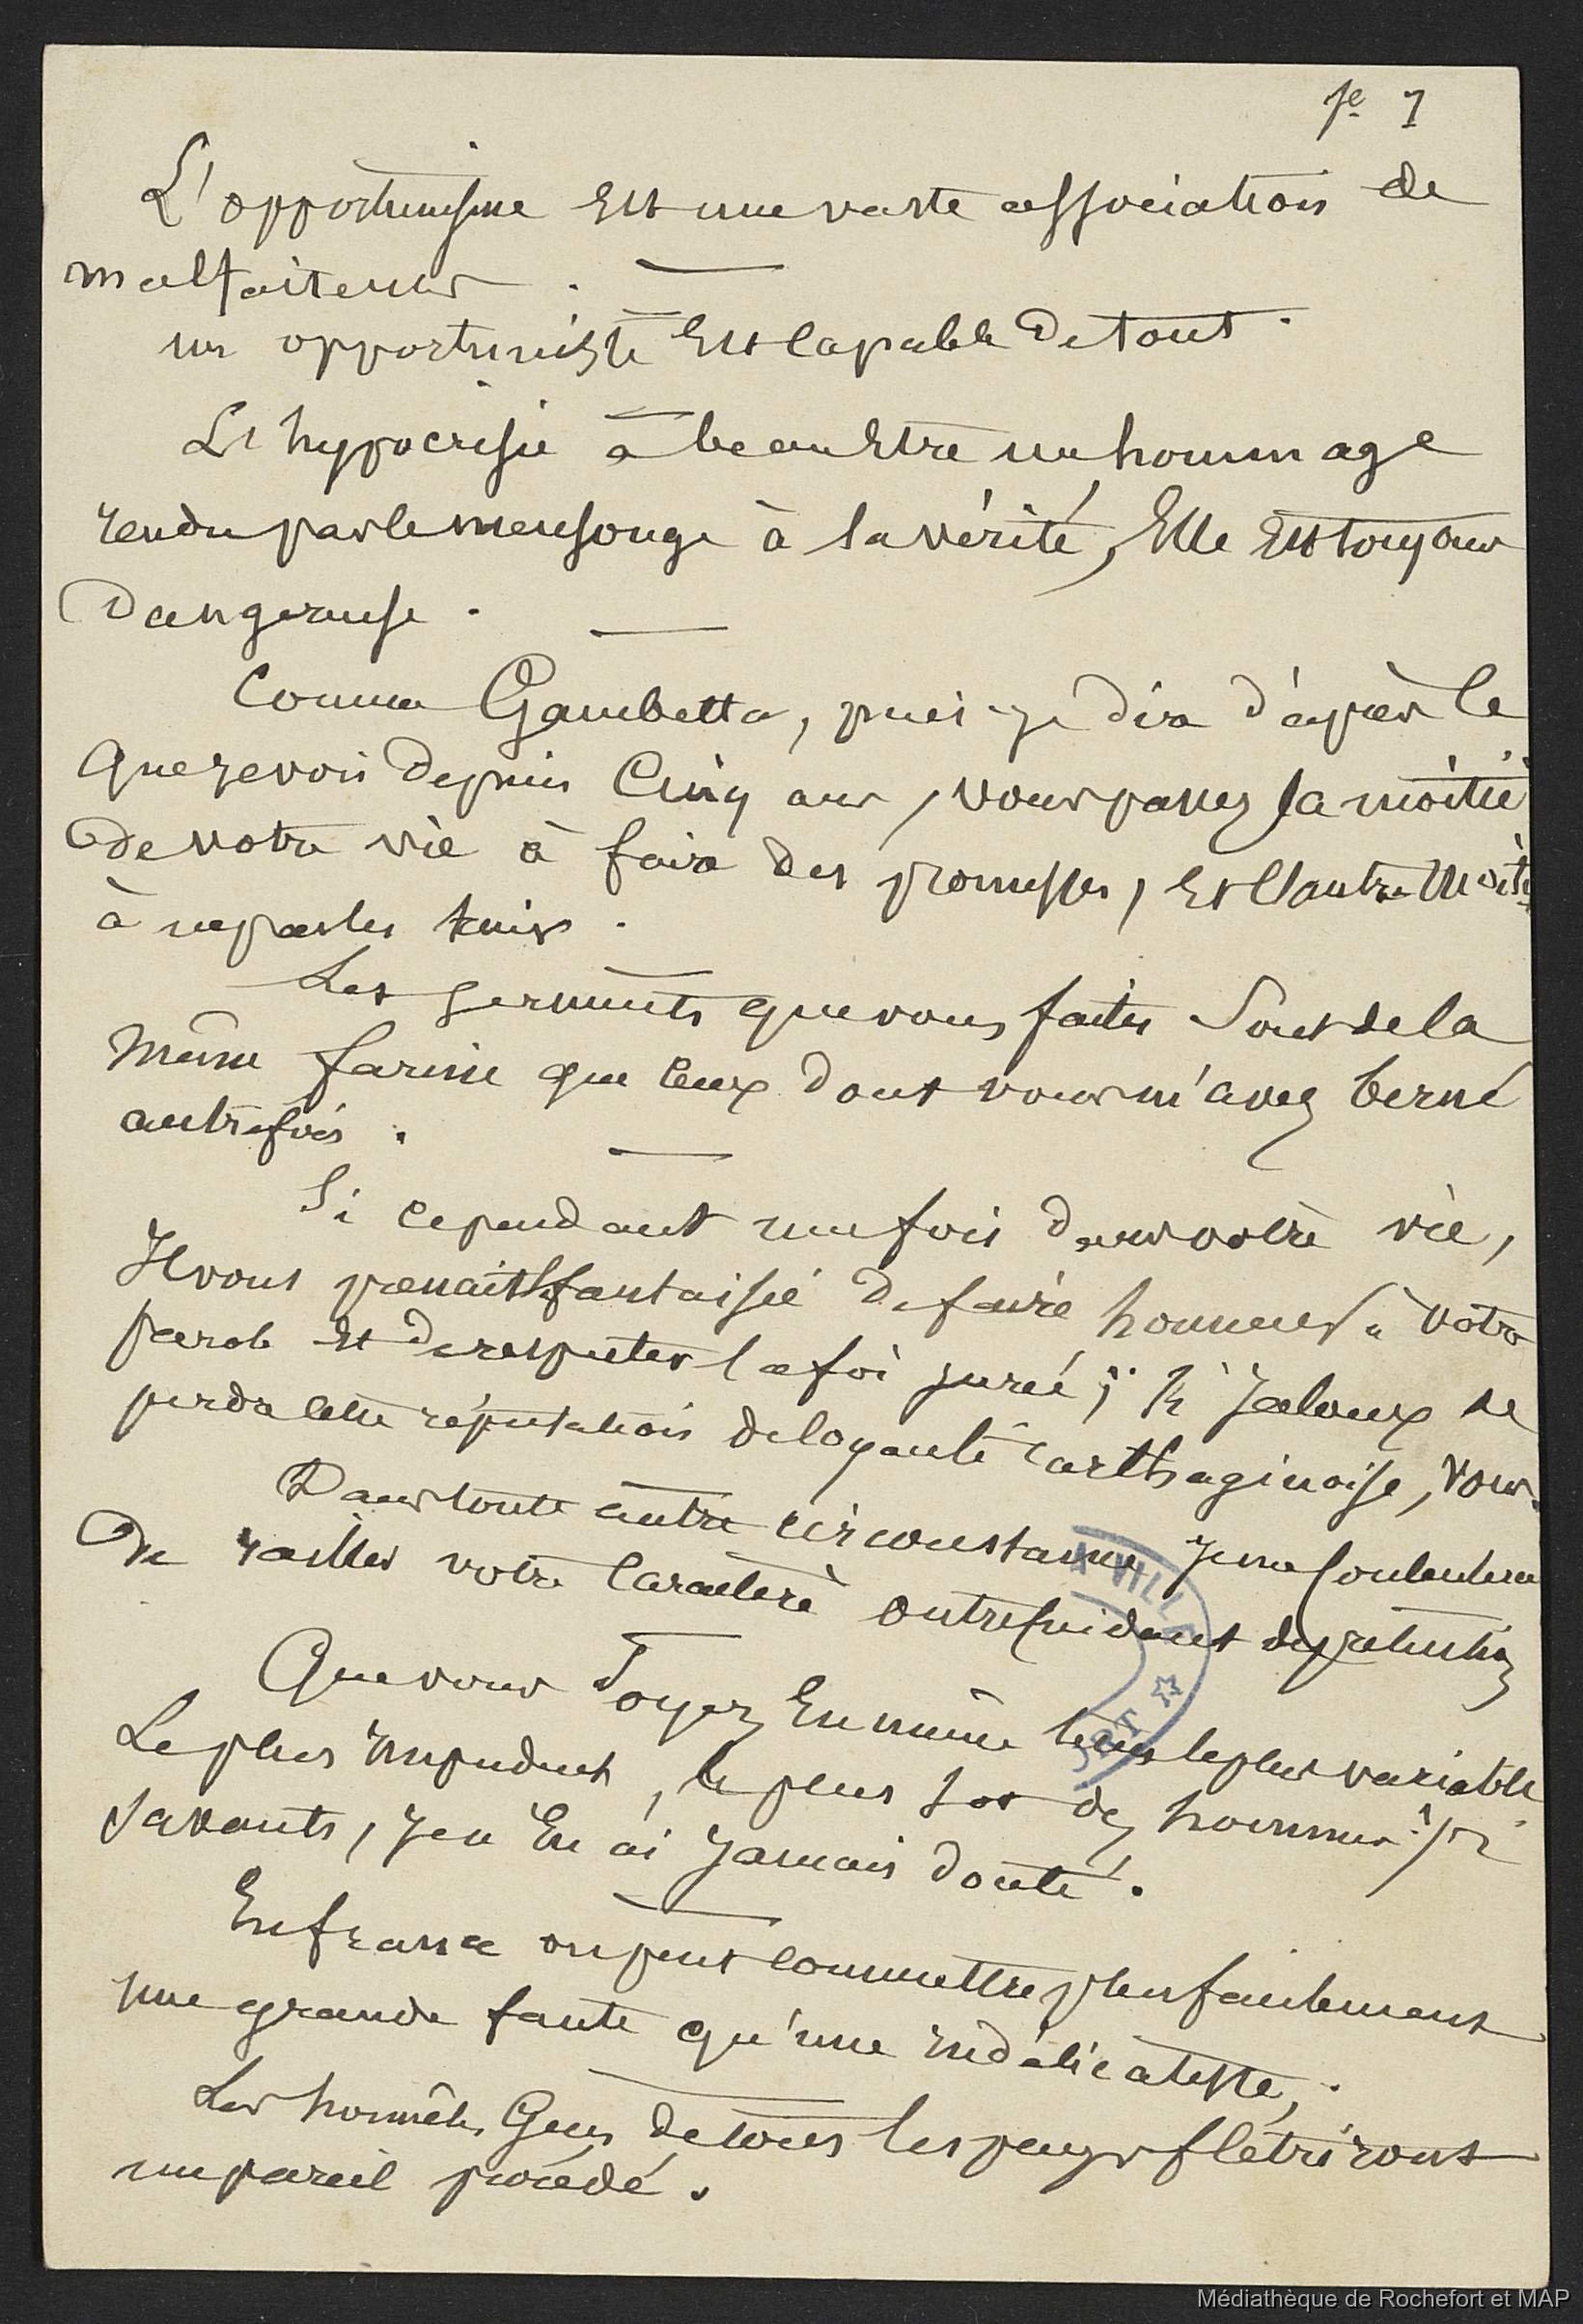 pe 7
L'opportunisme est une vaste association de
malfaiteurs.
un opportuniste est capable de tout.
L'hypocrisie a beau être un hommage
rendu par le mensonge à la vérité, Elle est toujours
dangereuse.
Comme Gambetta, puis-je dire d'après ce
que je vois depuis cinq ans, vous passez la moitié
de votre vie à faire des promesses, et l'autre moitié
à ne pas les tenir.
Les serments que vous faites sont de la
même farine que ceux dont vous m'avez berné
autrefois.
Si cependant une fois dans votre vie,
Il vous prenait fantaisie de faire honneur à votre
parole et de respecter la foi jurée, si jaloux de
perdre cette réputation de loyauté carthaginoise, vous
Dans toute autre circonstance je me contenterai
de railler votre caractère outrecuidant de prétention
Que vous soyez en même tems le plus variable
Le plus impudent, le plus sot des hommes
savants, je n'en ai jamais douté.
En france on peut commettre plus facilement
une grande faute qu'une indélicatesse,.
Les honnêtes Gens de tous les pays flétriront
un pareil procédé.
VILLE
Médiathèque de Rochefort et MAP